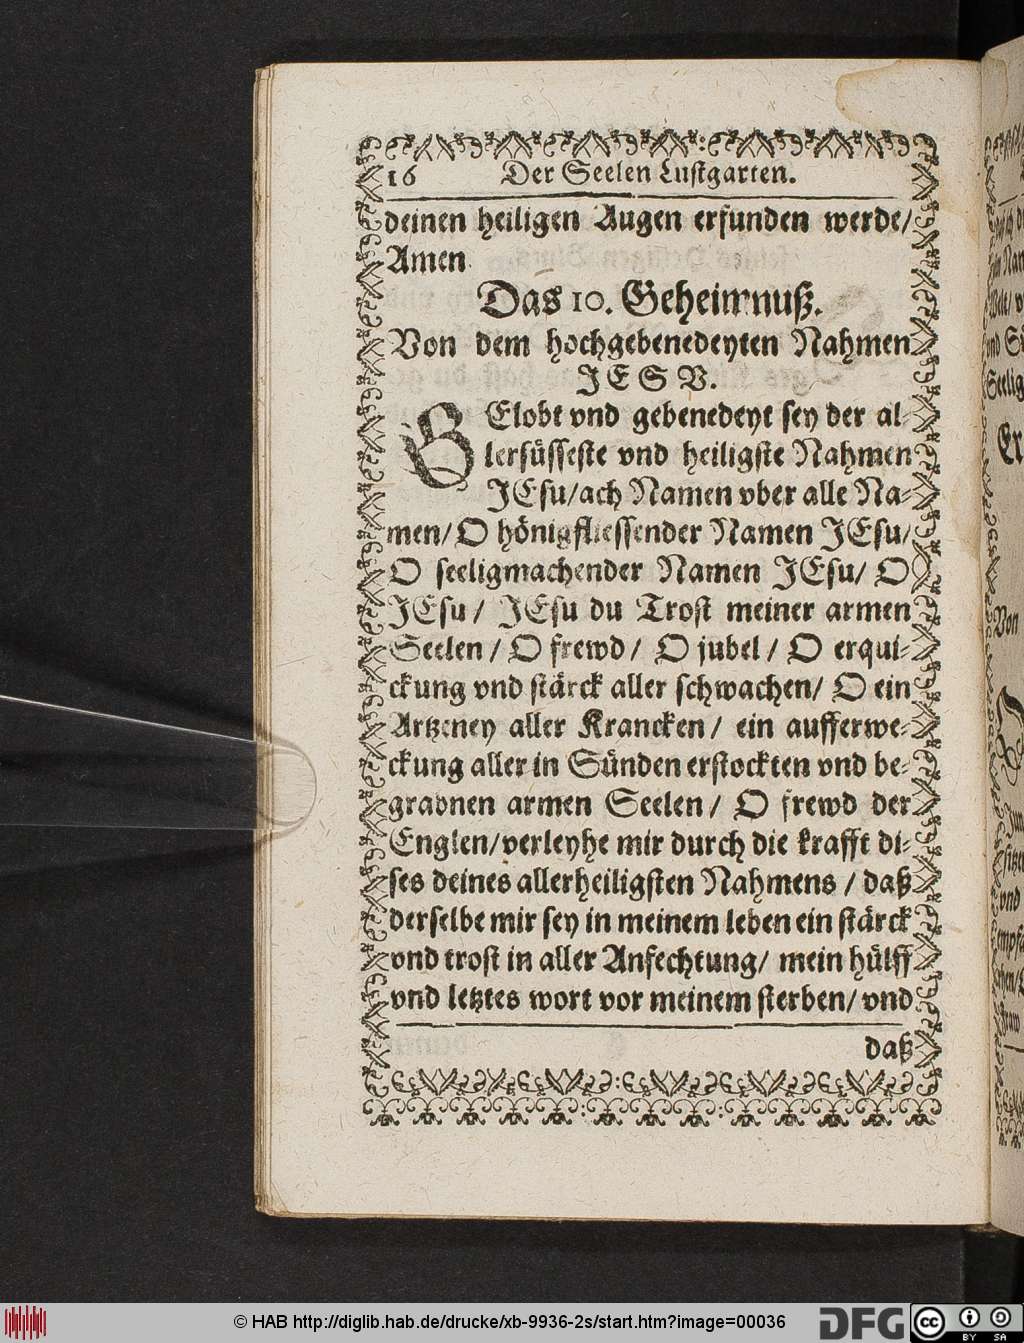 16 Der Seelen Lustgarten.
deinen heiligen Augen erfunden werde/
Amen
Das 10. Geheimnuß.
Von dem hochgebenedeyten Nahmen
JESV.
GElobt vnd gebenedeyt sey der al-
lersüsseste vnd heiligste Nahmen
JEsu/ach Namen vber alle Na-
men/ O hönigfliessender Namen JEsu/
O seeligmachender Namen JEsu/ O
JEsu / JEsu du Trost meiner armen
Seelen / O frewd / O jubel / O erqui-
ckung vnd stärck aller schwachen/ O ein
Artzeney aller Krancken / ein aufferwe-
ckung aller in Sünden erstockten vnd be-
grabnen armen Seelen / O frewd der
Englen/verleyhe mir durch die krafft di-
ses deines allerheiligsten Nahmens / daß
derselbe mir sey in meinem leben ein stärck
vnd trost in aller Anfechtung/ mein hülff
vnd letztes wort vor meinem sterben/ vnd
daß
© HAB http://diglib.hab.de/drucke/xb-9936-2s/start.htm?image=00036
DFG
cc BY SA